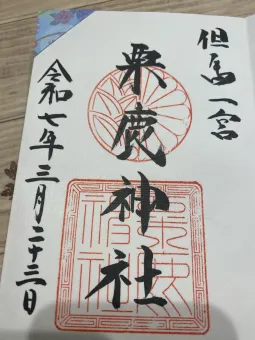 但馬一宮
粟鹿神社
令和七年三月二十三日